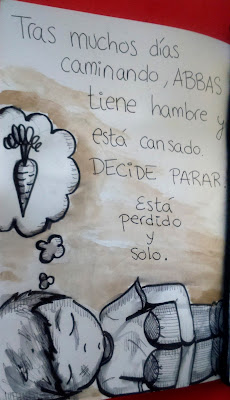 Tras muchos días
caminando, ABBAS
tiene hambre y
está cansado.
DECIDE PARAR.
Está
perdido
y
solo.